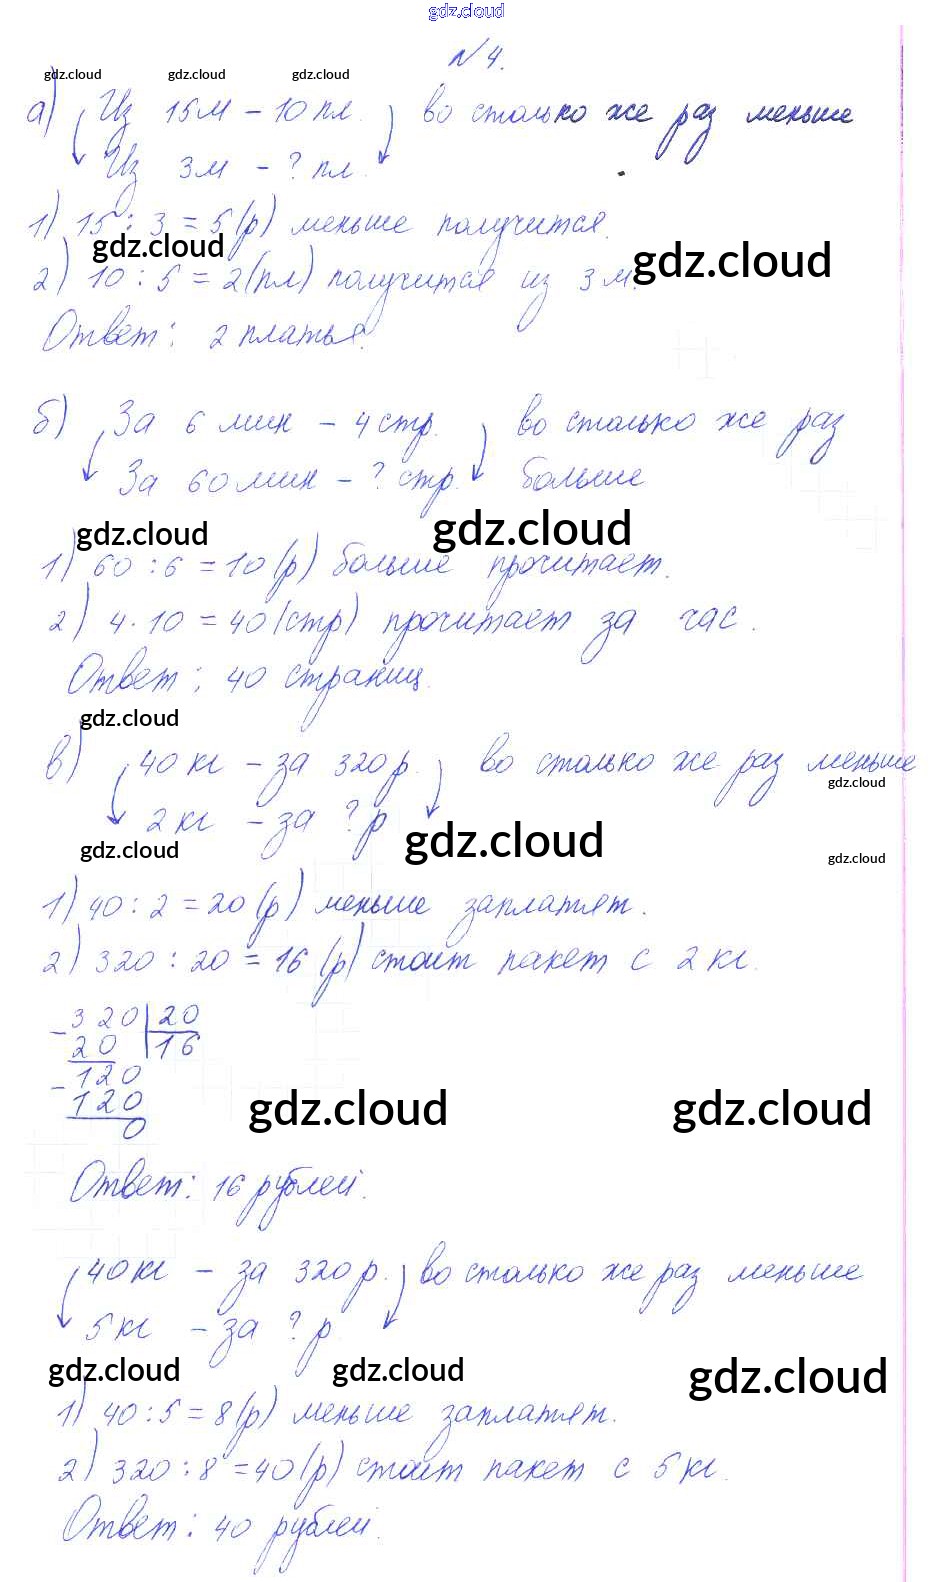 gdz.cloud
№ 4.
gdz.cloud gdz.cloud gdz.cloud
а) Из 15 м – 10 пл. во столько же раз меньше
Из 3 м – ? пл.
1) 15 : 3 = 5 (р) меньше получится.
gdz.cloud gdz.cloud
2) 10 : 5 = 2 (пл) получится из 3 м.
Ответ: 2 платья.
б) За 6 мин – 4 стр. во столько же раз
За 60 мин – ? стр. больше
gdz.cloud gdz.cloud
1) 60 : 6 = 10 (р) больше прочитает.
2) 4 · 10 = 40 (стр) прочитает за час.
Ответ: 40 страниц.
gdz.cloud
в) 40 кг – за 320 р. во столько же раз меньше
gdz.cloud
2 кг – за ? р
gdz.cloud gdz.cloud gdz.cloud
1) 40 : 2 = 20 (р) меньше заплатят.
2) 320 : 20 = 16 (р) стоит пакет с 2 кг.
– 320 | 20
20 | 16
– 120
120
0
gdz.cloud gdz.cloud
Ответ: 16 рублей.
40 кг – за 320 р. во столько же раз меньше
5 кг – за ? р
gdz.cloud gdz.cloud gdz.cloud
1) 40 : 5 = 8 (р) меньше заплатят.
2) 320 : 8 = 40 (р) стоит пакет с 5 кг.
Ответ: 40 рублей.